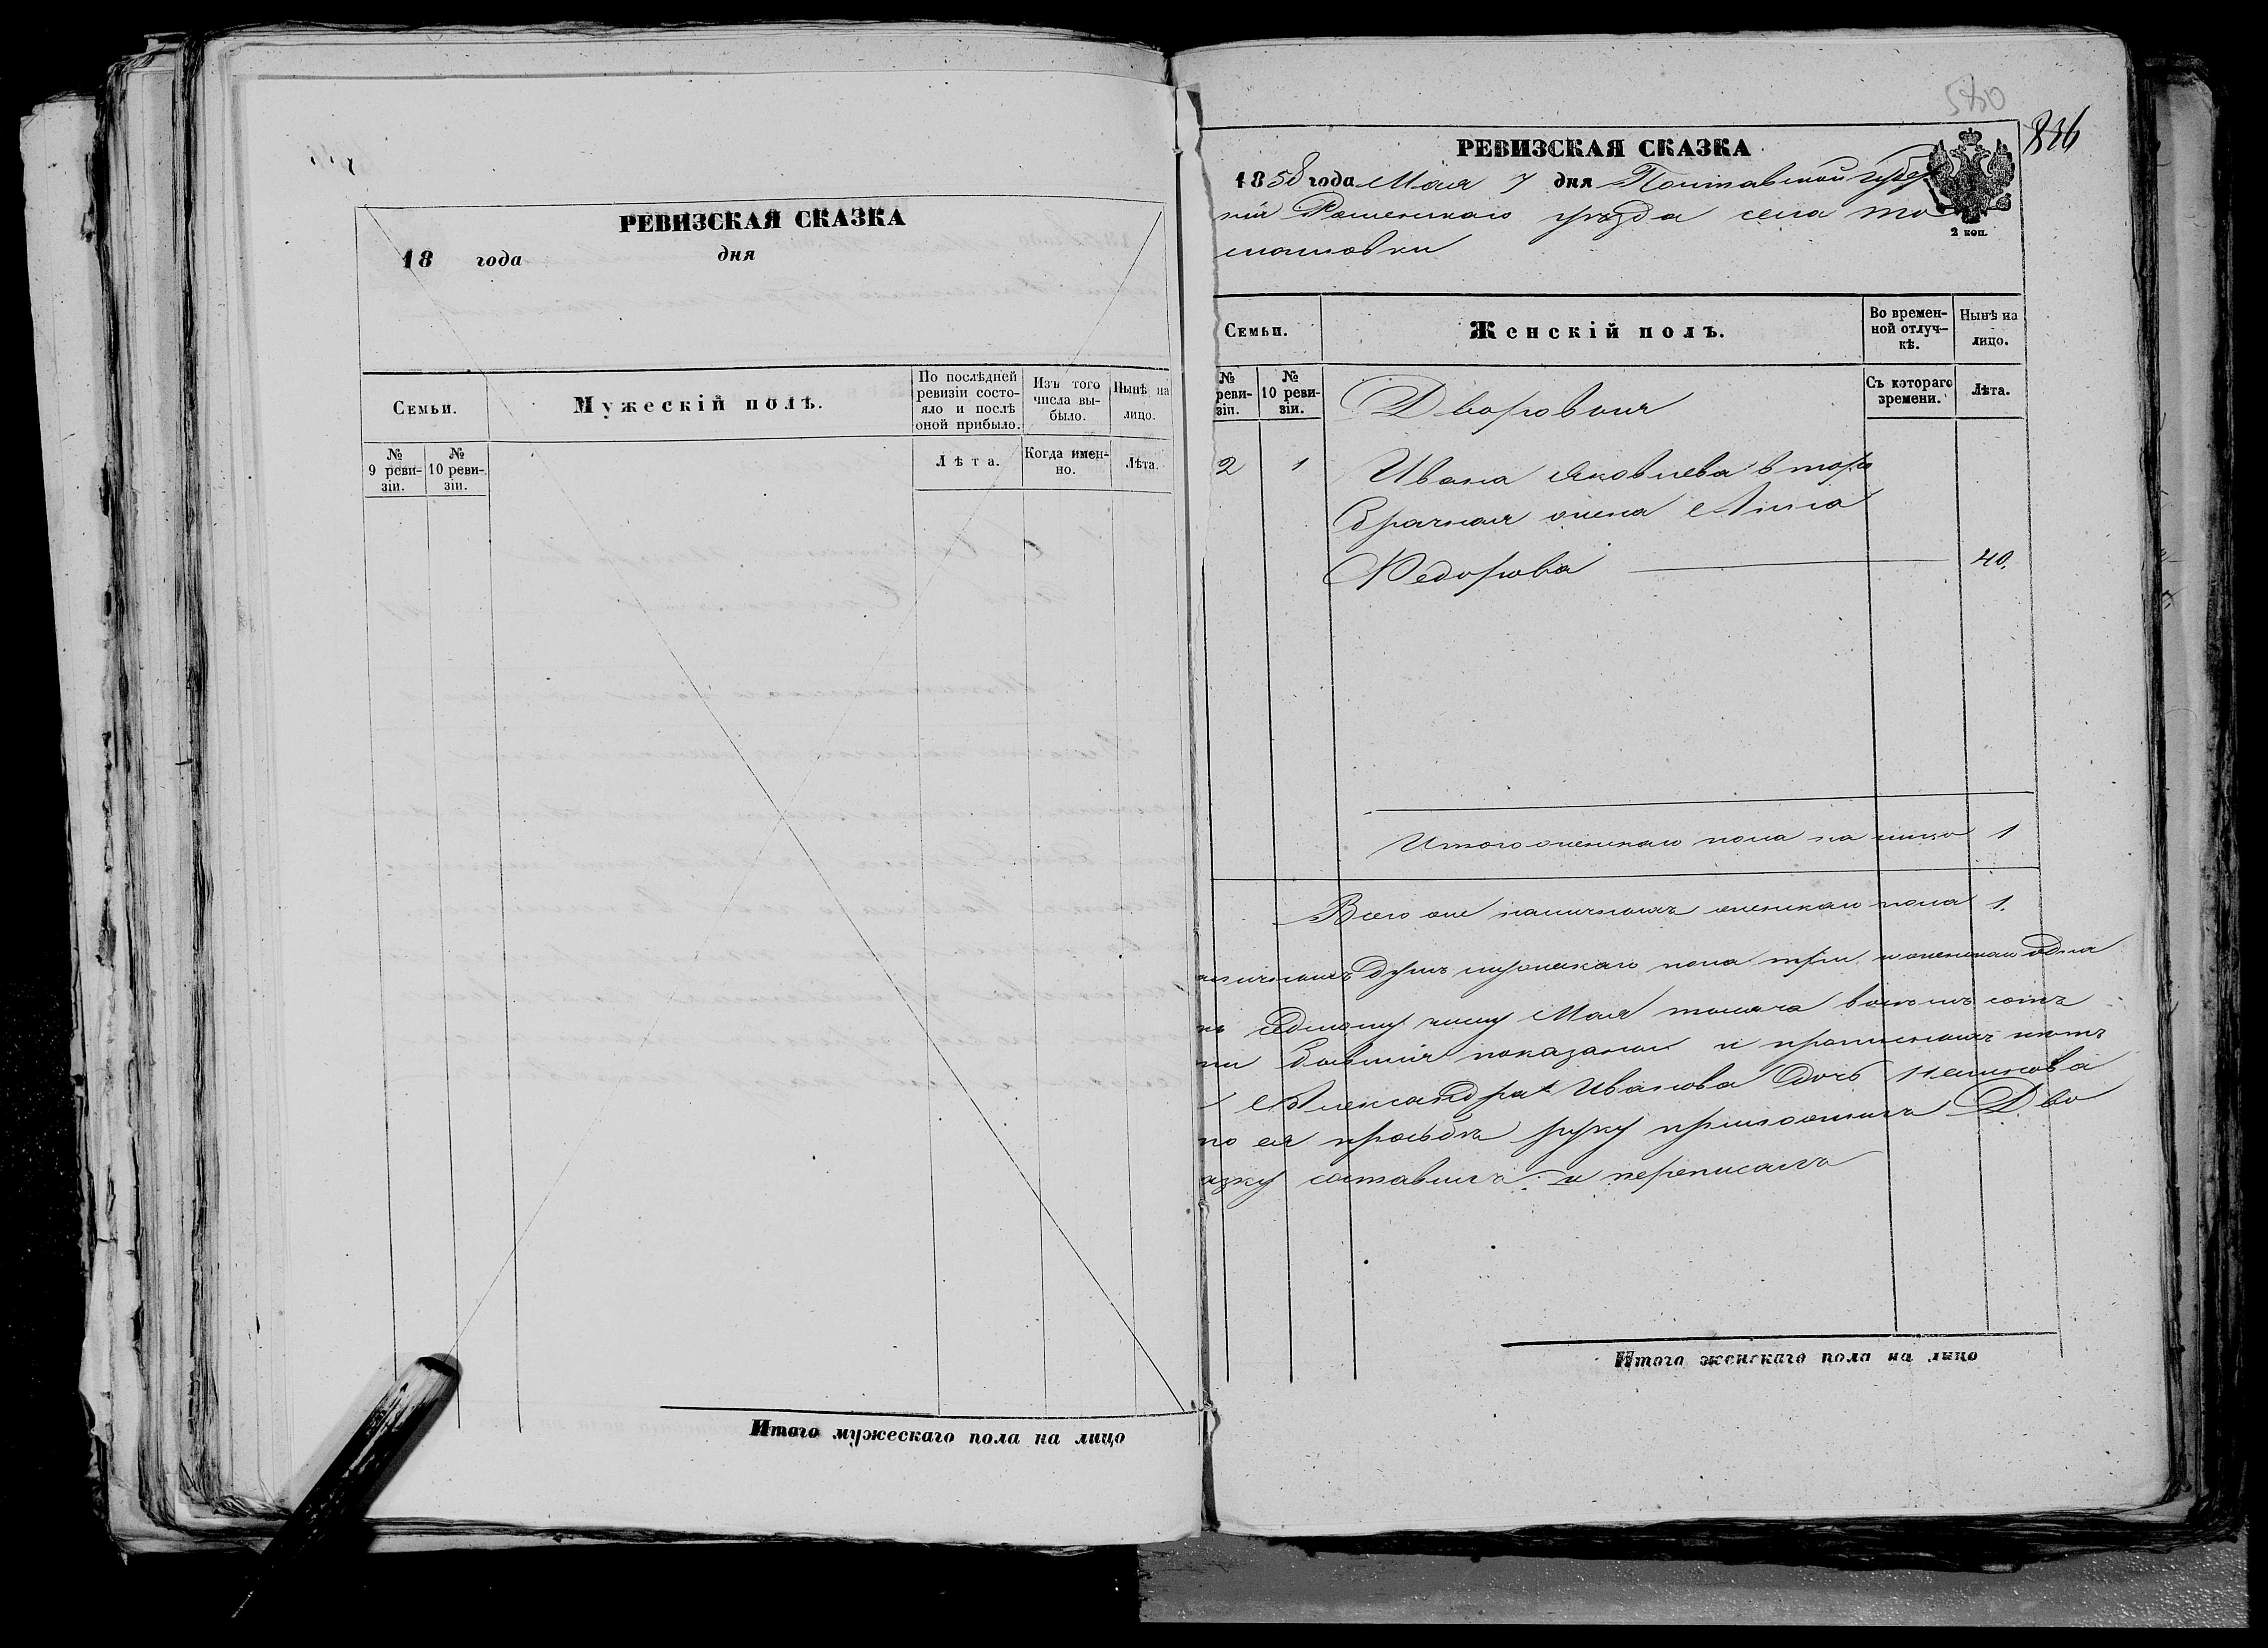 РЕВИЗСКАЯ СКАЗКА
18 года дня
Семьи.
Мужескій полъ.
По послѣдней ревизіи состояло и послѣ оной прибыло.
Изъ того числа выбыло.
Нынѣ на лицо.
№ 9 ревизіи.
№ 10 ревизіи.
Лѣта.
Когда именно.
Лѣта.
Итого мужескаго пола на лицо
580
836
РЕВИЗСКАЯ СКАЗКА
1858 года Мая 7 дня Полтавской губер
ніи Роменскаго уѣзда села То
машовки
2 коп.
Семьи.
Женскій полъ.
Во временной отлучкѣ.
Нынѣ на лицо.
№ ревизіи.
№ 10 ревизіи.
Съ котораго времени.
Лѣта.
Дворовыя
2 1 Ивана Яковлева втора
брачная жена Анна
Федорова 40.
Итого женскаго пола на лицо 1
Всего же наличныхъ женскаго пола 1.
наличныхъ душъ мужескаго пола три, и женскаго одна
къ седмому числу Мая тысяча восемь сотъ
ии бывшія показаны и прописныхъ нѣтъ
Александра Иванова дочь
по ея просьбѣ руку приложилъ Дво
азку составилъ и переписалъ
Итого женскаго пола на лицо